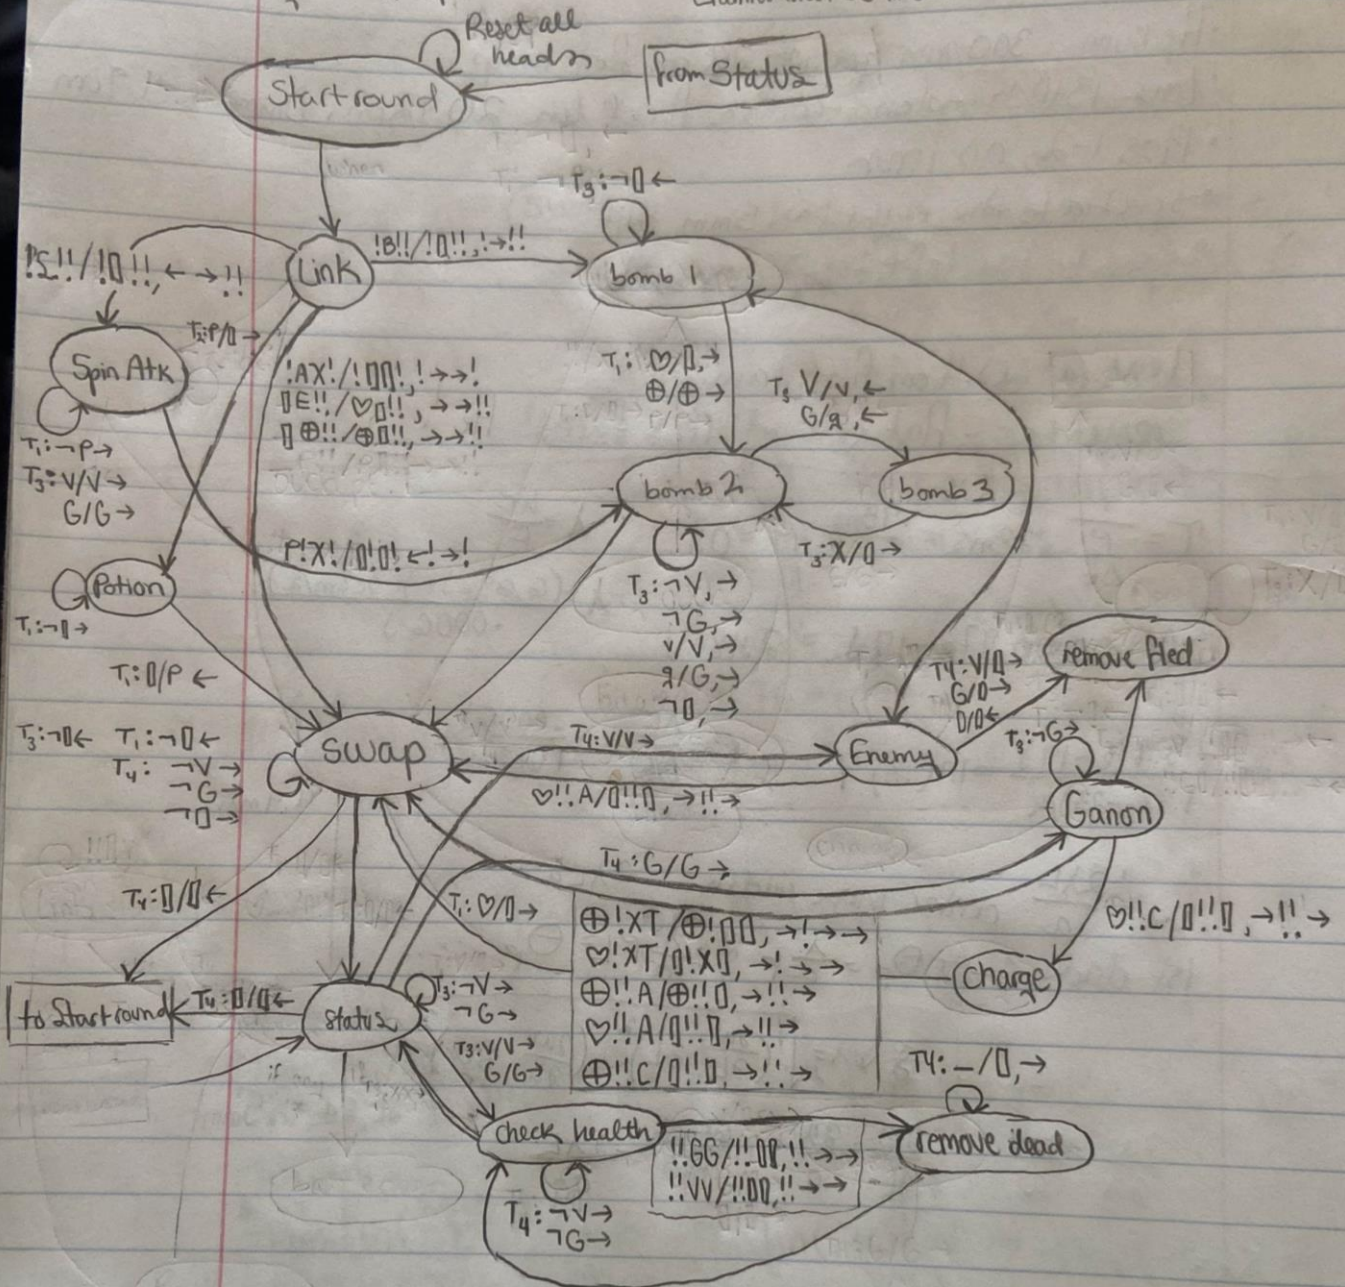 Reset all
heads
from Status
Start round
T₃:¬▯←
!B!!/!▯!!,!→!!
!Σ!!/!▯!!,←→!!
Link
bomb 1
T₂:P/▯→
Spin Atk
T₁: ♡/▯,→
⊕/⊕→
!AX!/!▯▯!,!→→!
▯E!!/♡▯!!,→→!!
▯⊕!!/⊕▯!!,→→!!
T₃ V/v,←
G/g,←
T₁:¬P→
T₃:V/V→
G/G→
bomb 2
bomb 3
P!X!/▯!▯!←!→!
T₃:X/▯→
Potion
T₁:¬▯→
T₃:¬V,→
¬G,→
v/V,→
g/G,→
¬▯,→
T₁:▯/P←
remove fled
T4:V/▯→
G/▯→
▯/▯←
T₃:¬▯← T₁:¬▯←
T₄: ¬V→
¬G→
¬▯→
Swap
T₄:V/V→
Enemy
T₃:¬G→
♡!!A/▯!!▯,→!!→
Ganon
T₄:G/G→
T₄:▯/▯←
T₁:♡/▯→
⊕!XT/⊕!▯▯,→!→→
♡!XT/▯!X▯,→!→→
⊕!!A/⊕!!▯,→!!→
♡!!A/▯!!▯,→!!→
⊕!!C/▯!!▯,→!!→
♡!!C/▯!!▯,→!!→
Charge
to Start round
T₄:▯/▯←
Status
T₃:¬V→
¬G→
T3:V/V→
G/G→
T4:_/▯,→
check health
!!GG/!!▯▯,!!→→
!!VV/!!▯▯,!!→→
remove dead
T₄:¬V→
¬G→